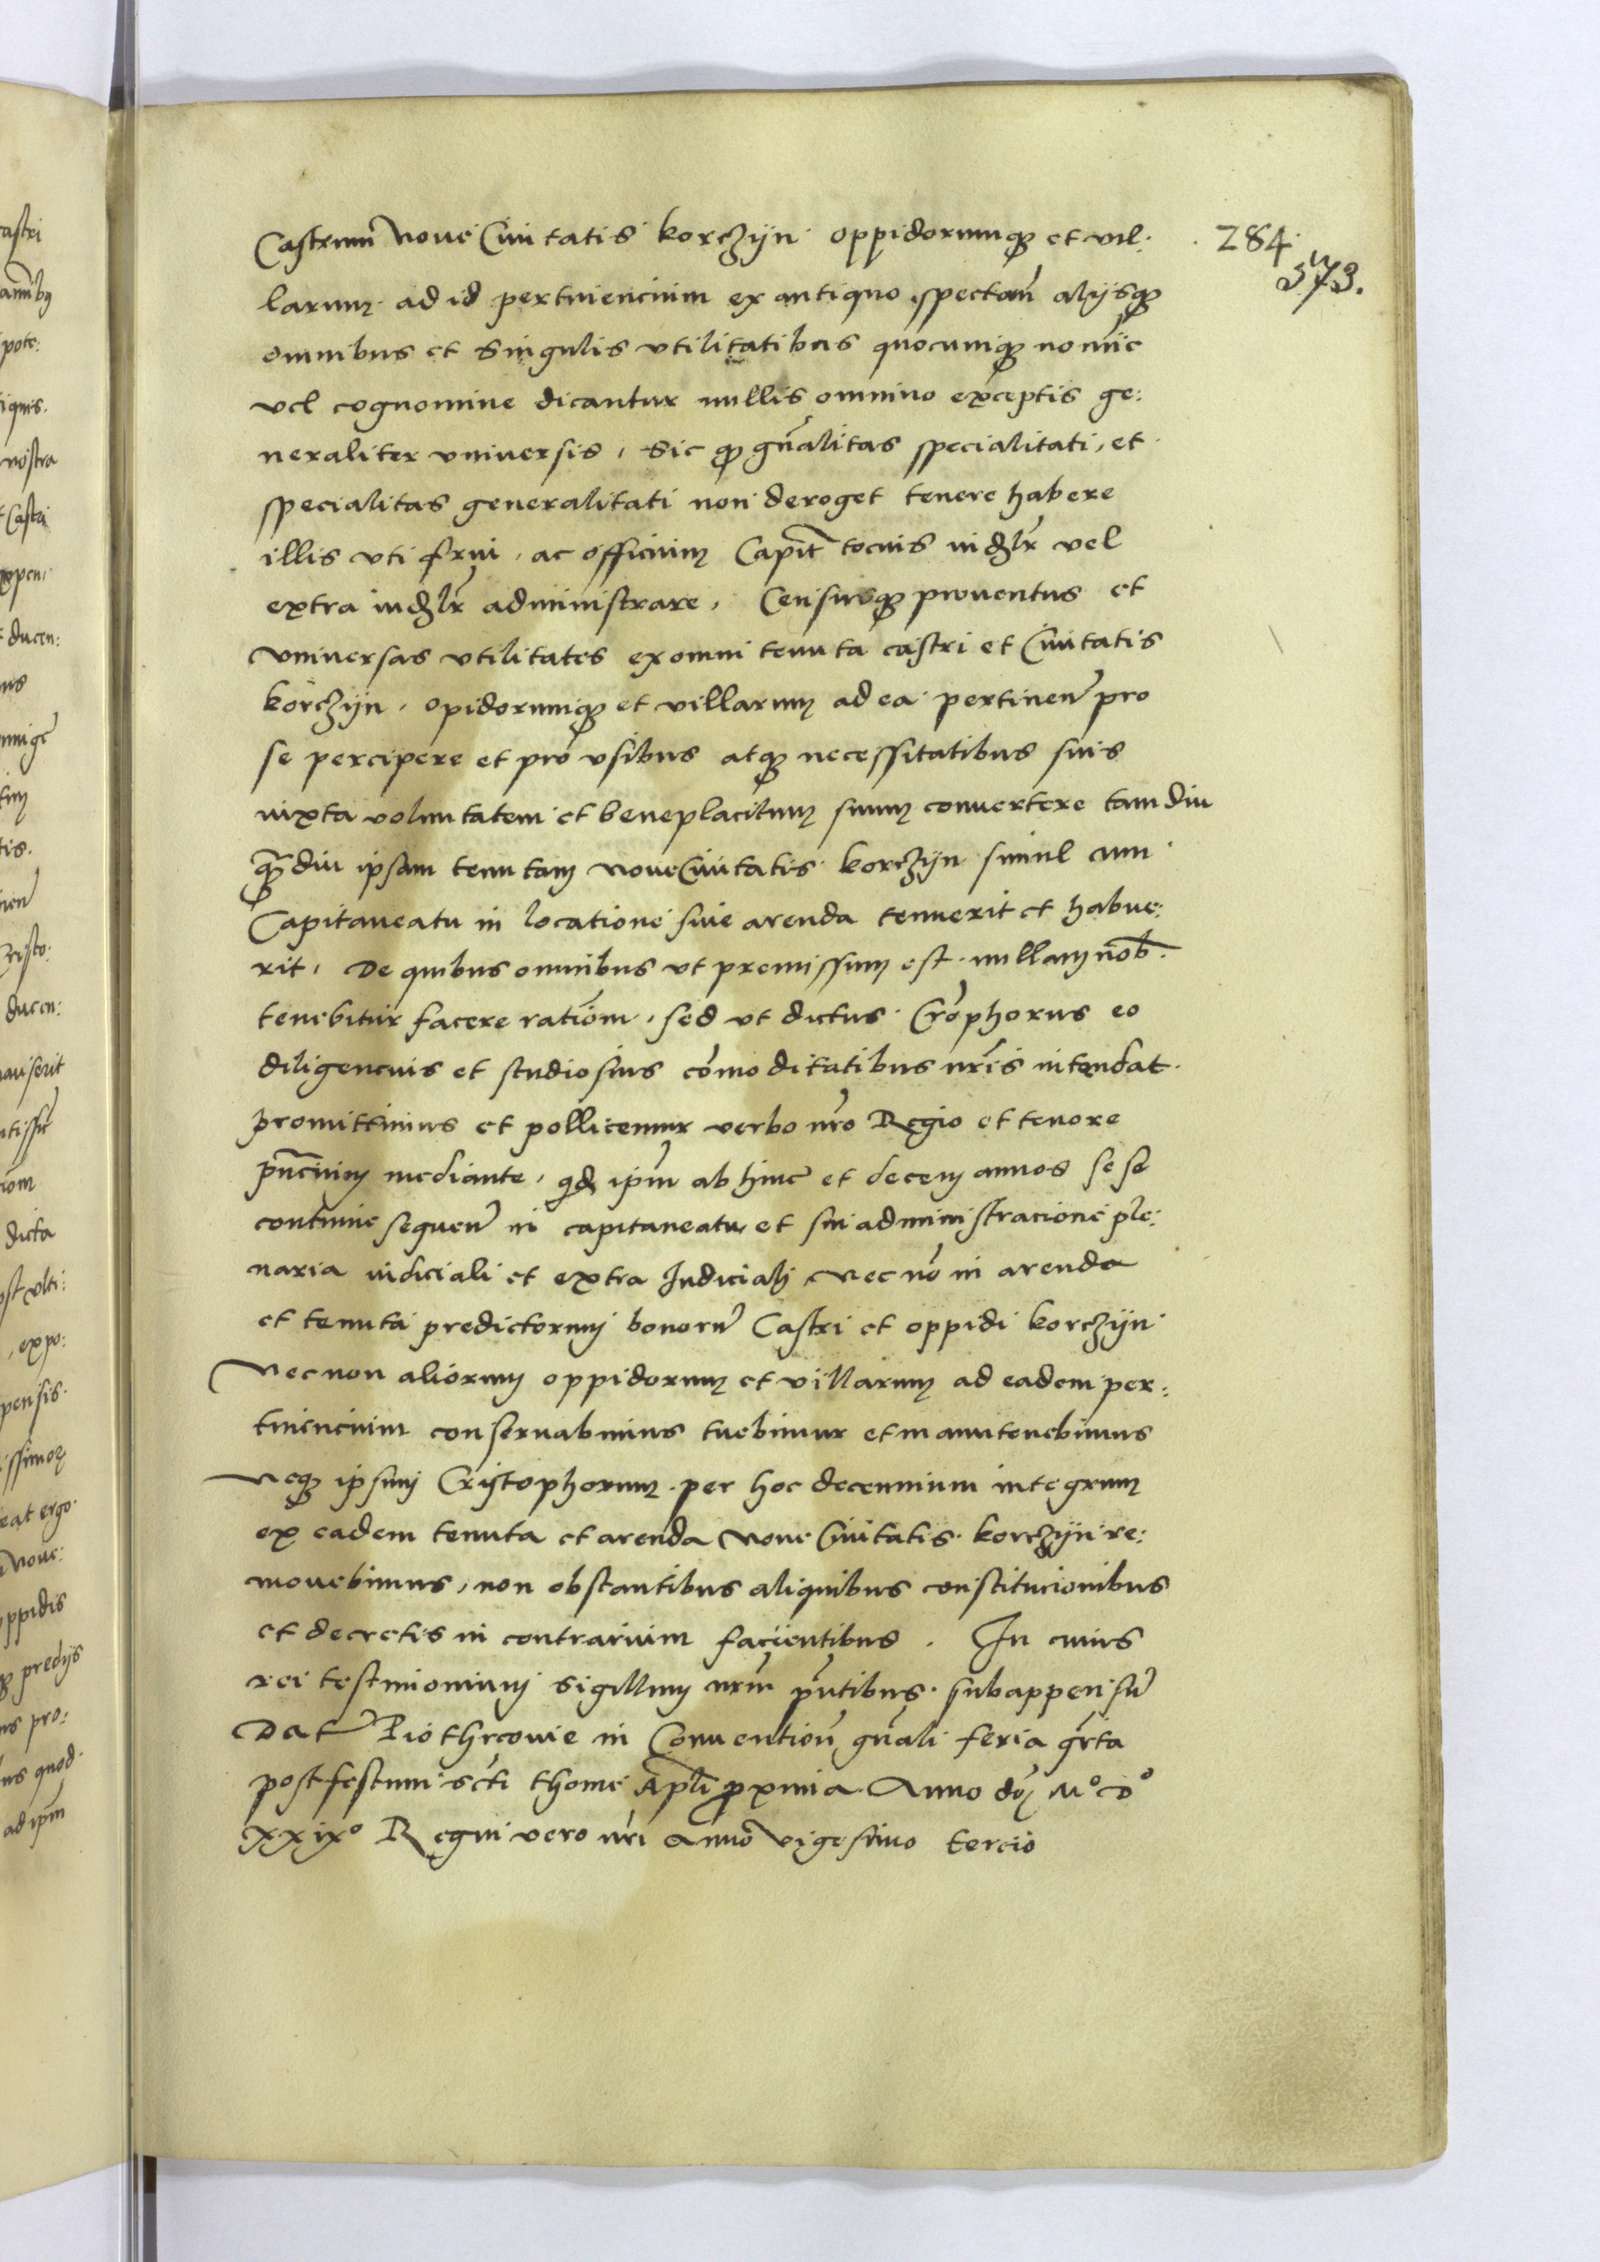 Castrum Noue Ciuitatis korczijn oppidorumq et vil:
larum ad id pertinencium ex antiquo spectan̄ alijsq
omnibus et singulis vtilitatibus quocumq nomīe
vel cognomine dicantur nullis omnino exceptis ge:
neraliter vniuersis, Sic q gn̄alitas specialitati, et
specialitas generalitati non deroget tenere habere
illis vti frui, ac officium Capit̄ tocius iudʒlr̄ vel
extra iudʒlr̄ administrare, Censusq prouentus et
vniuersas vtilitates ex omni tenuta castri et Ciuitatis
korczijn, opidorumq et villarum ad ea pertinen̄ pro
se percipere et pro vsibus atq necessitatibus suis
iuxta voluntatem et beneplacitum suum conuertere tam diu
q̄diu ipsam tenutam Noue Ciuitatis korczijn simul cum
Capitaneatu in locatione siue arenda tenuerit et habue:
rit, De quibus omnibus vt premissum est nullam nob̄
tenebitur facere ratiōm, sed vt dictus Crōphorus eo
diligencius et studiosius cōmoditatibus nr̄is intendat
promittimus et pollicemur verbo nr̄o Regio et tenore
pn̄cium mediante, qd ipm̄ ab hinc et decem annos se se
continue sequen̄ in capitaneatu et sui administracione ple:
naria iudiciali et extra Iudiciali Nec nō in arenda
et tenuta predictorum bonorū Castri et oppidi korczijn
Necnon aliorum oppidorum et villarum ad eadem per:
tinencium conseruabimus tuebimur et manutenebimus
Neq ipsum Cristophorum per hoc decennium integrum
ex eadem tenuta et arenda Noue Ciuitatis korczijn re:
mouebimus, non obstantibus aliquibus constitucionibus
et decretis in contrarium facientibus. In cuius
rei testimonium sigillum nr̄m pn̄tibus subappensū
Dat̄ Piothrcouie in Conuention̄ gn̄ali feria qr̄ta
post festum scti thome Apli proxima Anno dnj Mº Dº
xxixº Regni vero nr̄i Anno vigesimo tercio
284
573.